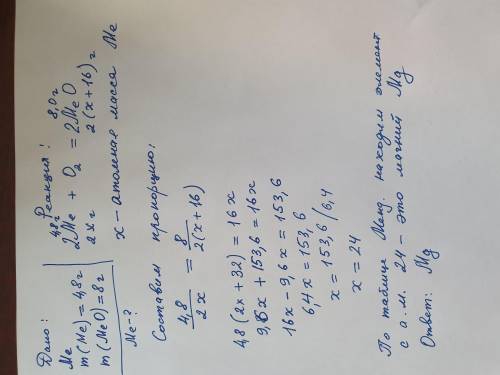 Дано:
Me
m(Me) = 4,8г
m(MeO) = 8г
Me-?
Реакция:
4,8г 8,0г
2Me + O2 = 2MeO
2xг 2(x+16)г
x – атомная масса Me
Составим пропорцию:
4,8/2x = 8/2(x+16)
4,8(2x+32) = 16x
9,6x + 153,6 = 16x
16x - 9,6x = 153,6
6,4x = 153,6
x = 153,6/6,4
x = 24
По таблице Менд. находим элемент
с а.м. 24 – это магний Mg
Ответ: Mg